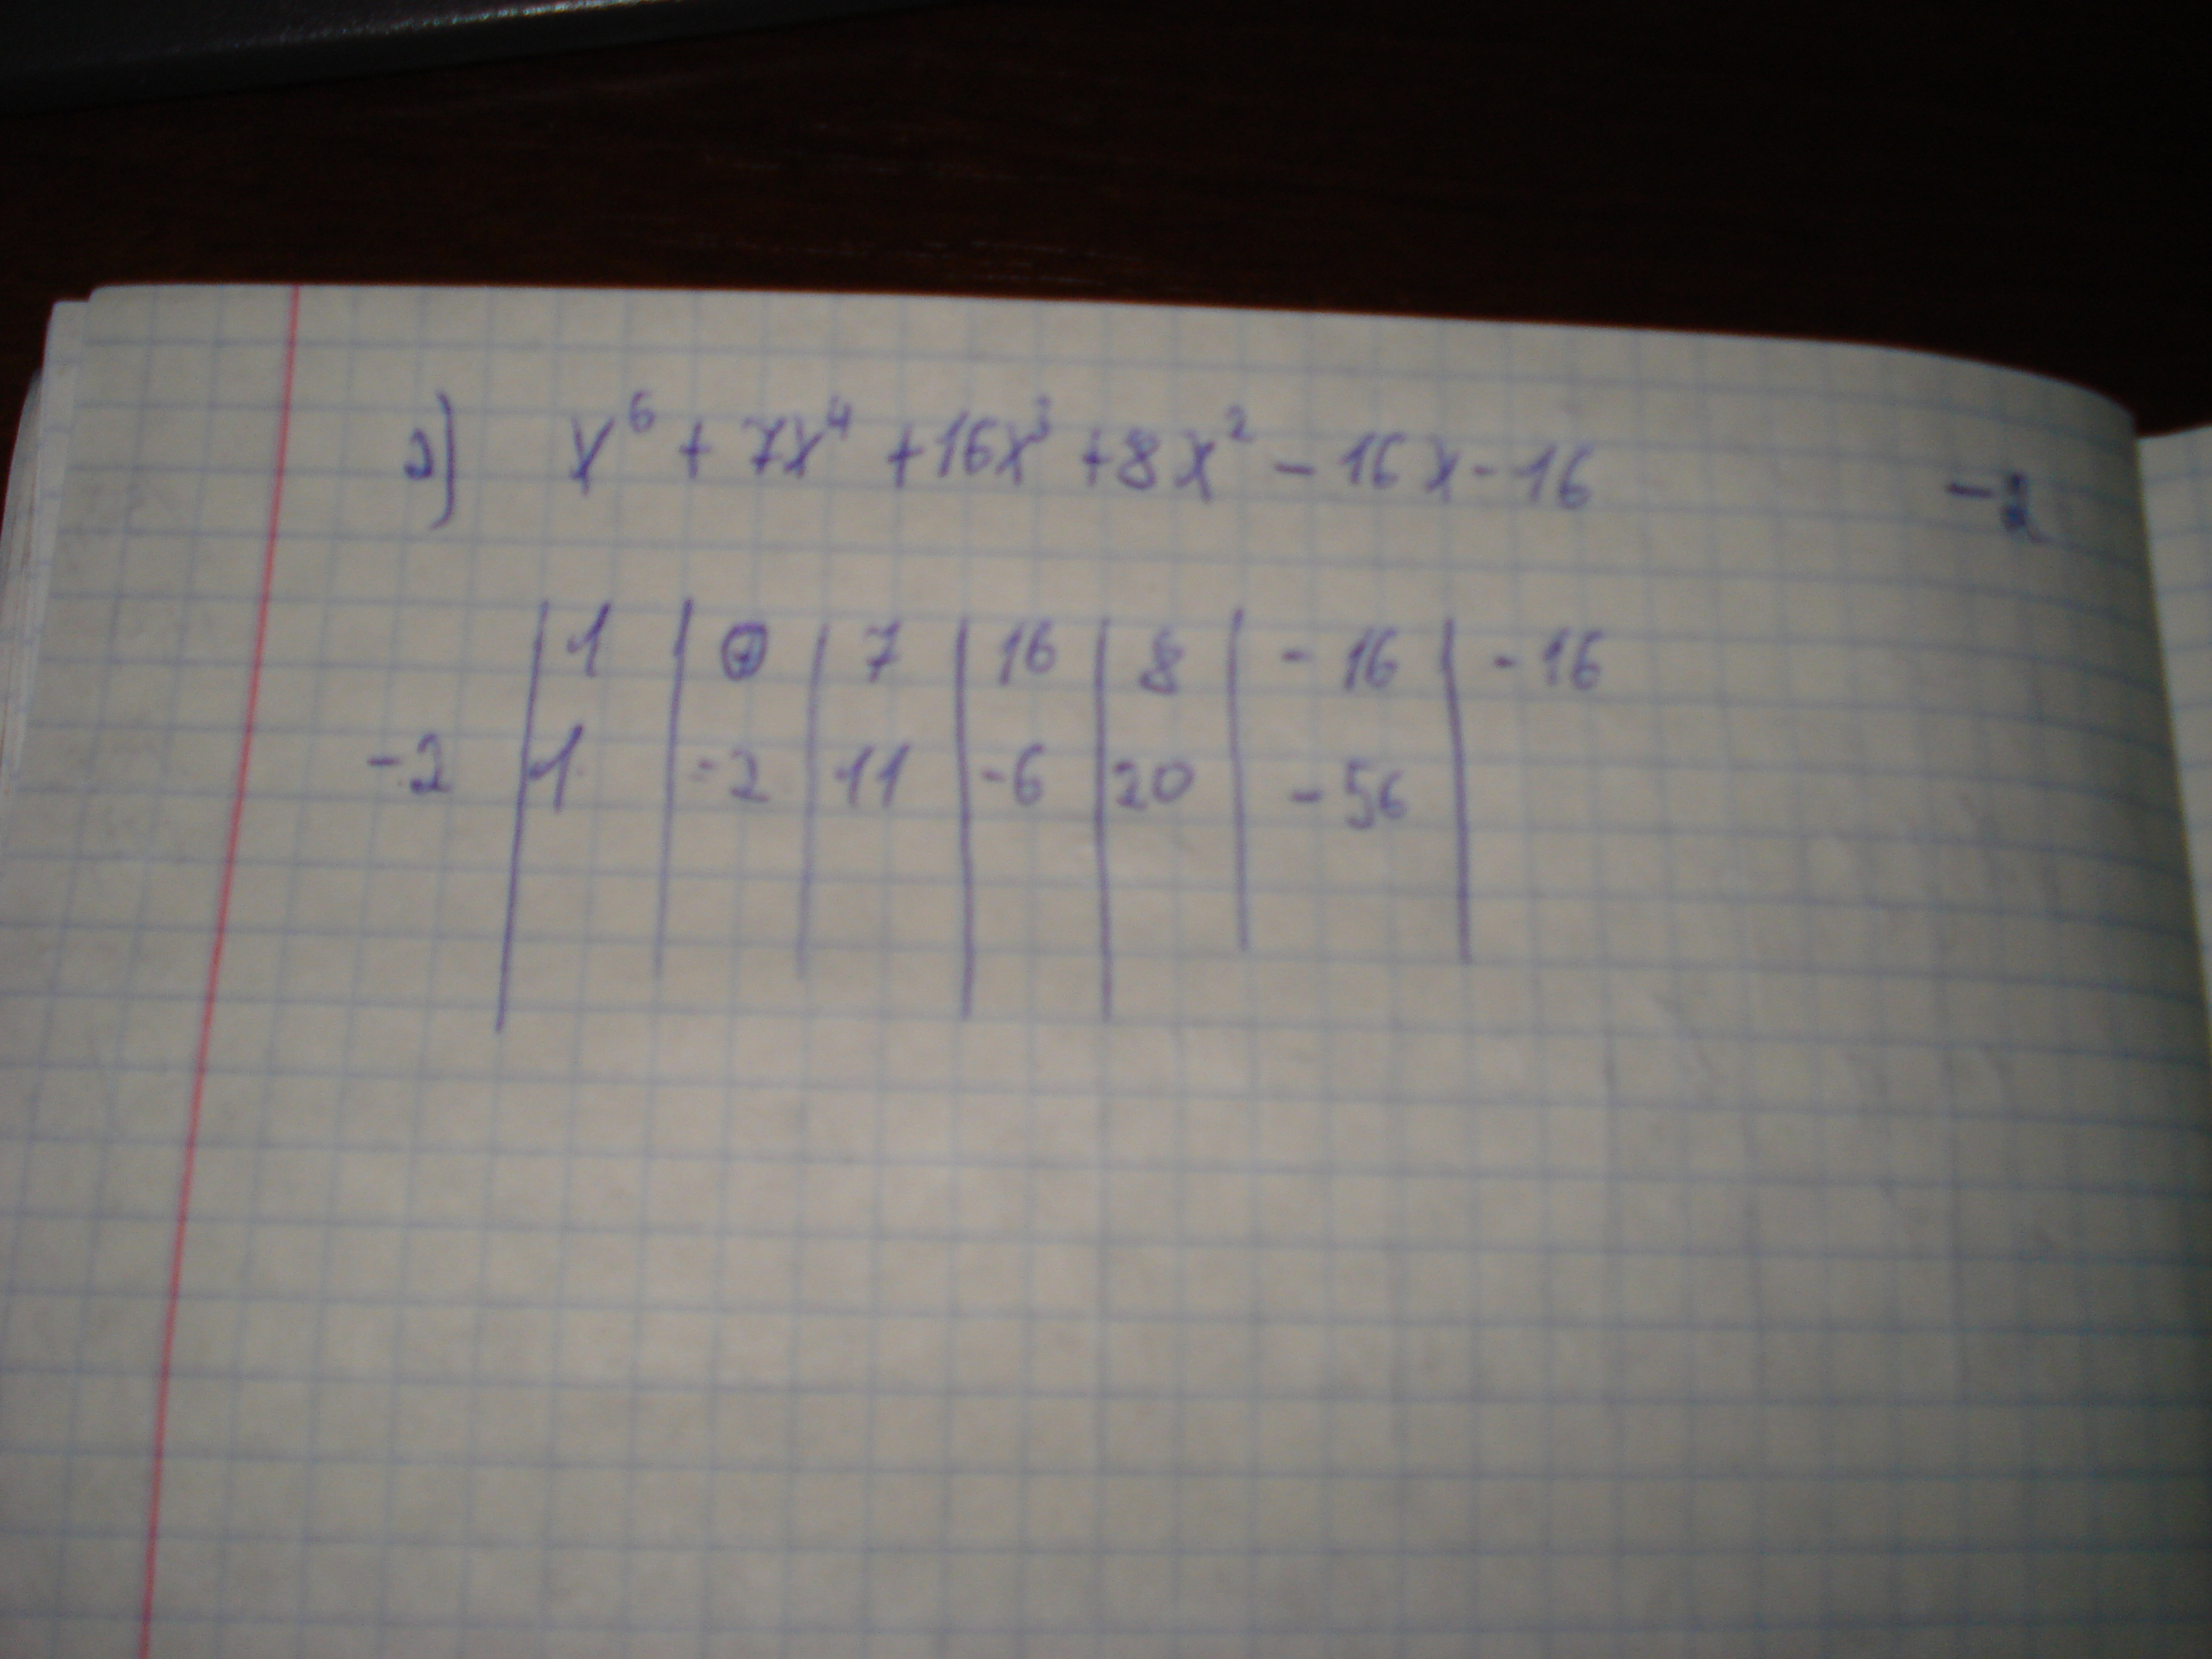 2) x⁶ + 7x⁴ + 16x³ + 8x² - 16x - 16
1 | 0 | 7 | 16 | 8 | - 16 | - 16
-2 | 1 | -2 | 11 | -6 | 20 | - 56